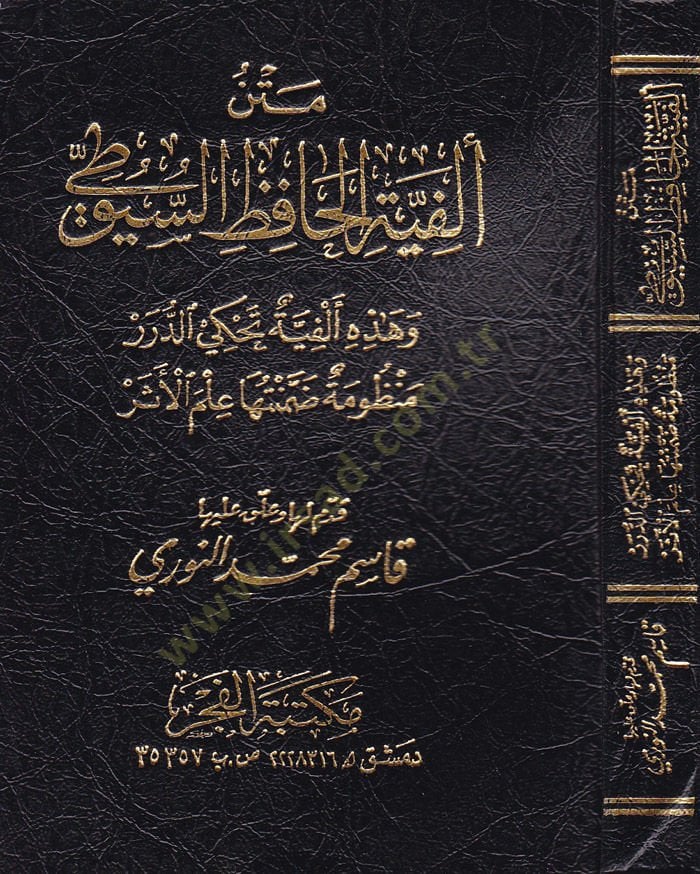 مَتْنُ
ألفِيَّةِ الحَافِظِ السُّيُوطِيّ
وَهَذِهِ أَلْفِيَّةٌ تَحْكِي الدُّرَرْ
مَنْظُومَةٌ ضَمَّنْتُهَا عِلْمَ الْأَثَرْ
قدّم لها وعلّق عليها
قاسم محمد النوري
مكتبة الفجر
دمشق ه ٢٢٢٨٣١٦ ص.ب ٣٥٣٥٧
www.irsad.com.tr
متن
ألفية الحافظ السيوطي
وهذه ألفية تحكي الدرر
منظومة ضمنتها علم الأثر
قدم لها وعلق عليها
قاسم محمد النوري